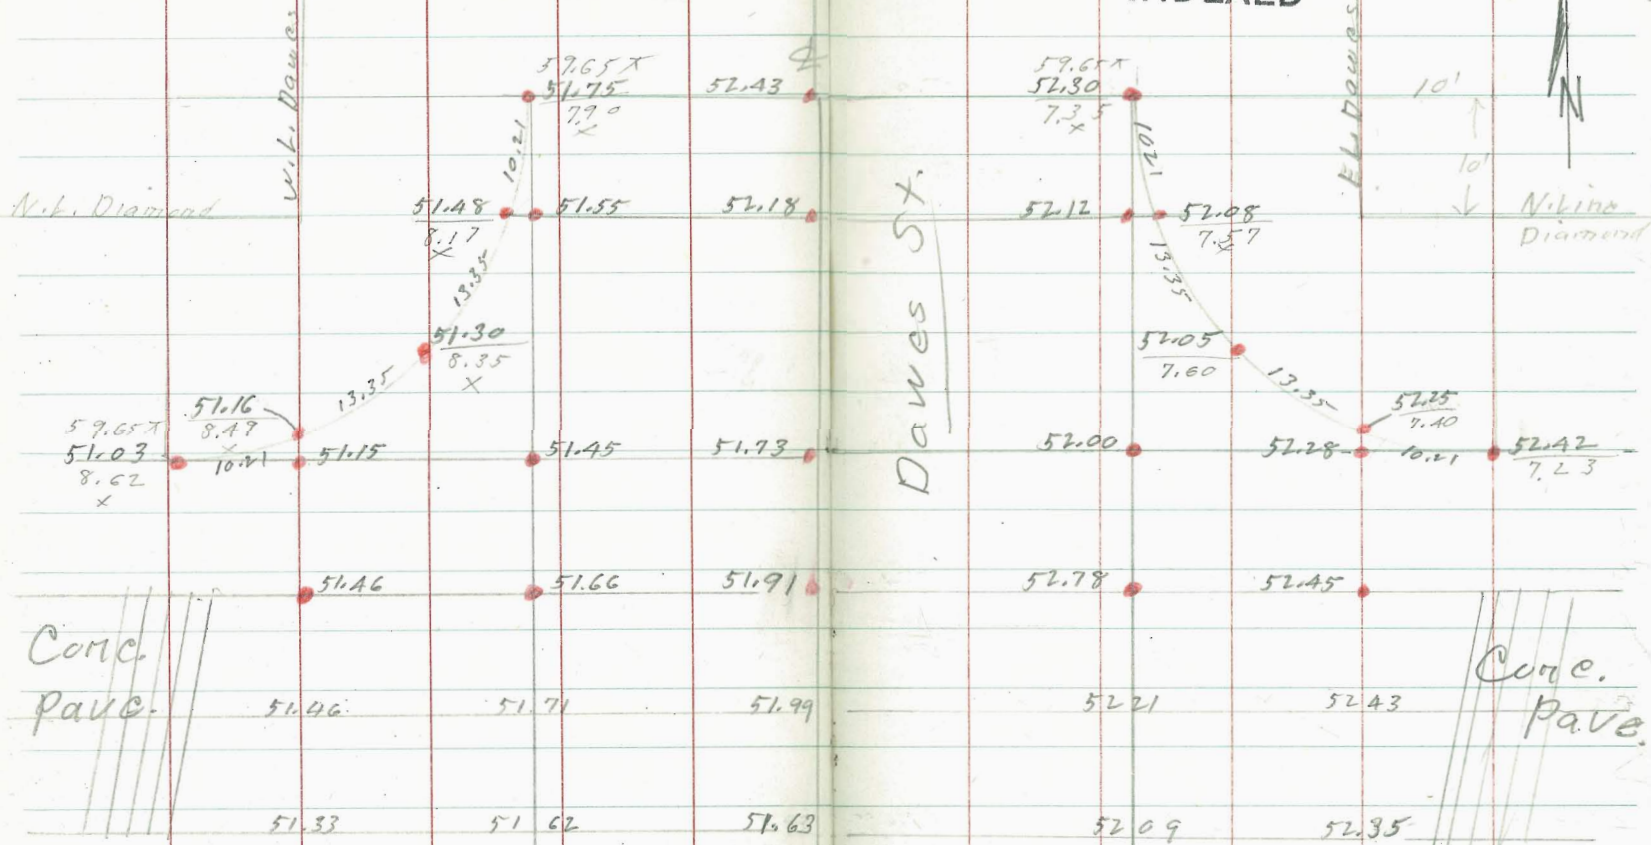 W.L. Dawes
E.L. Dawes
N
59.65 X
51.75
7.90
X
52.43
59.65 X
52.30
7.35
X
10'
10.21
10.21
10'
N.L. Diamond
51.48
8.17
X
51.55
52.18
52.12
52.08
7.57
N. Line
Diamond
Dawes St.
13.35
13.35
51.30
8.35
X
52.05
7.60
13.35
13.35
51.16
8.49
X
52.25
7.40
59.65 X
51.03
8.62
X
10.21
51.15
51.45
51.73
52.00
52.28
10.21
52.42
7.23
51.46
51.66
51.91
52.78
52.45
Conc.
Pave.
Conc.
Pave.
51.46
51.71
51.99
52 21
52 43
51.33
51 62
51.63
52 09
52.35